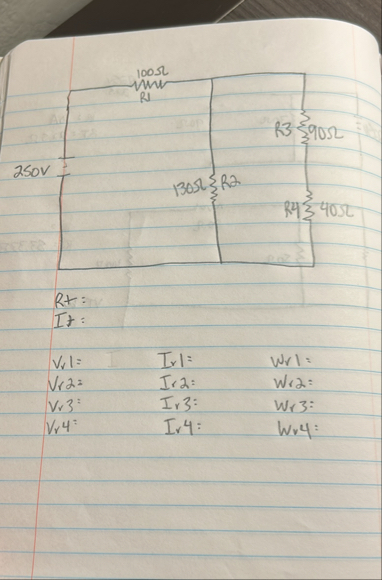 100Ω
R1
R3 90Ω
250V
130Ω R2
R4 40Ω
Rt:
It:
Vr1= Ir1= Wr1=
Vr2= Ir2= Wr2=
Vr3= Ir3= Wr3=
Vr4= Ir4= Wr4=